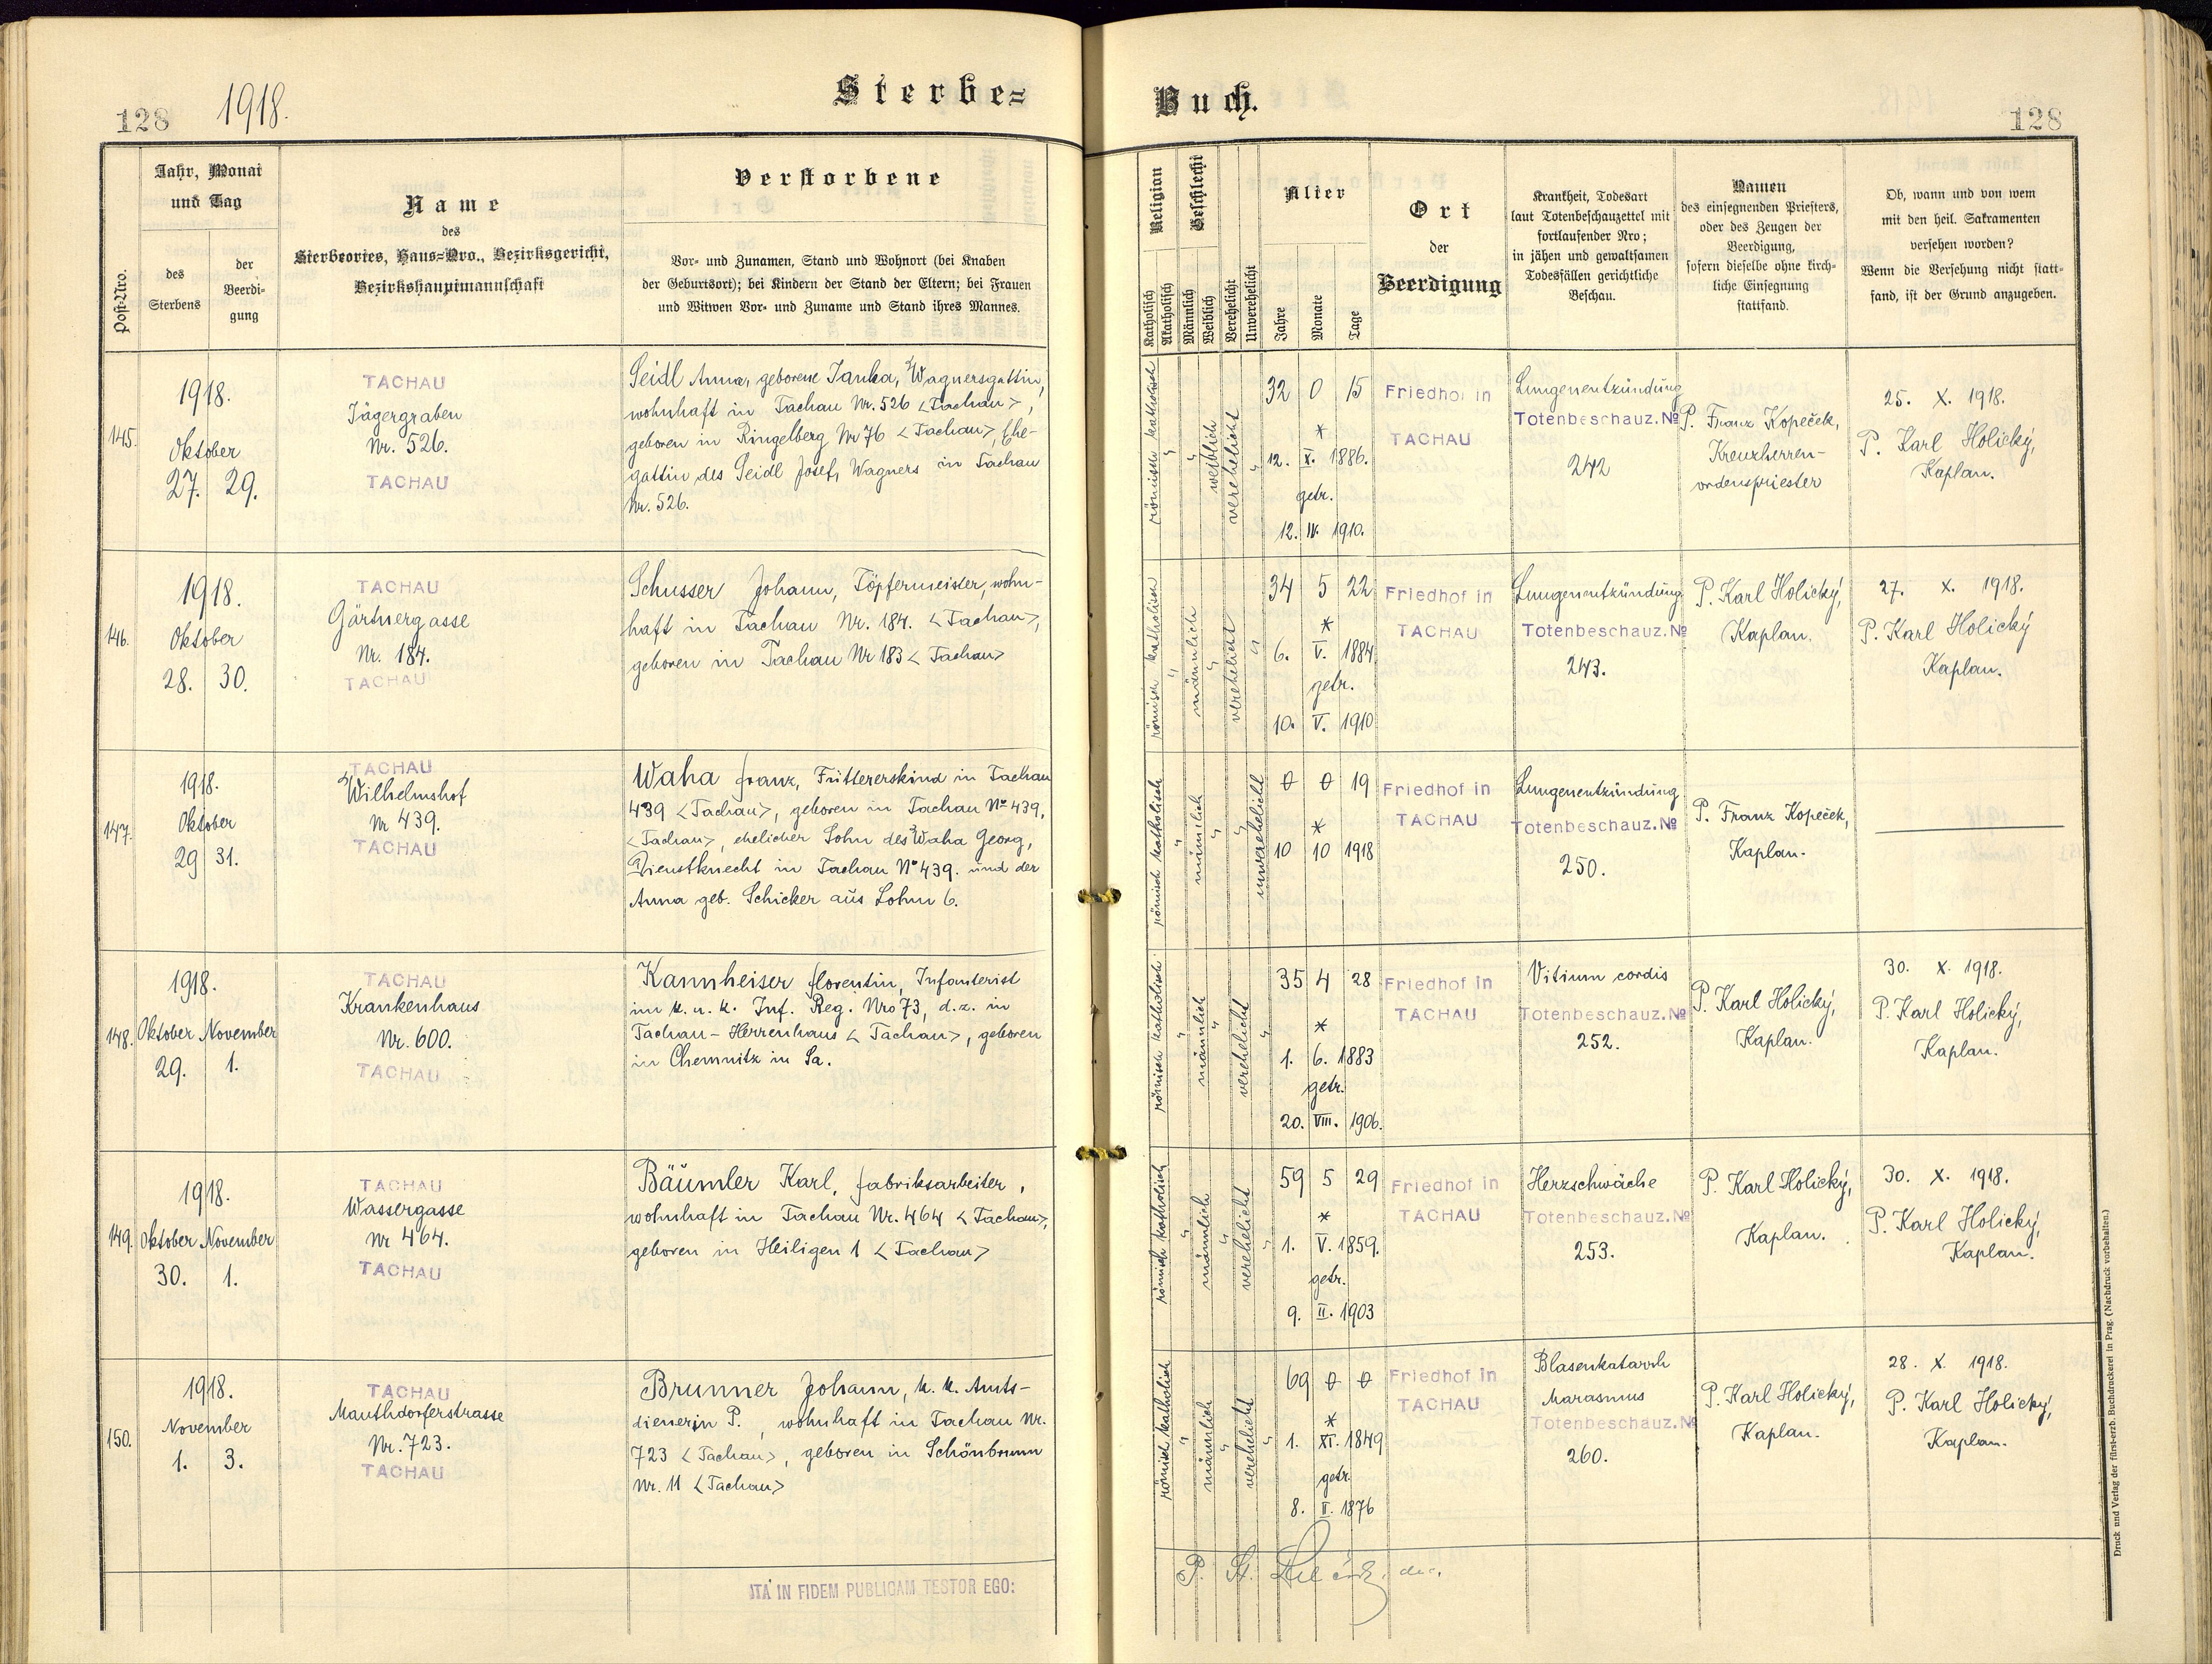 128 1918. Sterbe=
Jahr, Monat
und Tag
Post-Nro.
des
Sterbens
der
Beerdi-
gung
Name
des
Sterbeortes, Haus=Nro., Bezirksgericht,
Bezirkshauptmannschaft
Verstorbene
Vor= und Zunamen, Stand und Wohnort (bei Knaben
der Geburtsort); bei Kindern der Stand der Eltern; bei Frauen
und Witwen Vor= und Zuname und Stand ihres Mannes.
145.
1918.
Oktober
27. 29.
TACHAU
Jägergraben
Nr. 526.
TACHAU
Seidl Anna, geborene Janka, Wagnersgattin,
wohnhaft in Tachau Nr. 526 <Tachau>,
geboren in Ringelberg Nr 76 <Tachau>, Ehe-
gattin des Seidl Josef, Wagners in Tachau
Nr. 526.
146.
1918.
Oktober
28. 30.
TACHAU
Gärtnergasse
Nr. 184.
TACHAU
Schusser Johann, Töpfermeister, wohn-
haft in Tachau Nr. 184. <Tachau>,
geboren in Tachau Nr 183 <Tachau>
147.
1918.
Oktober
29 31.
TACHAU
Wilhelmshof
Nr 439.
TACHAU
Waha Franz, Füttererskind in Tachau
439 <Tachau>, geboren in Tachau No 439,
<Tachau>, ehelicher Sohn des Waha Georg,
Dienstknecht in Tachau No 439. und der
Anna geb. Schicker aus Lohm 6.
148.
1918.
Oktober November
29. 1.
TACHAU
Krankenhaus
Nr. 600.
TACHAU
Kannheiser Florentin, Infanterist
im k. u. k. Inf. Reg. Nro 73, d. z. in
Tachau - Herrenhaus <Tachau>, geboren
in Chemnitz in Sa.
149.
1918.
Oktober November
30. 1.
TACHAU
Wassergasse
Nr 464.
TACHAU
Bäumler Karl, Fabriksarbeiter,
wohnhaft in Tachau Nr. 464 <Tachau>,
geboren in Heiligen 1 <Tachau>
150.
1918.
November
1. 3.
TACHAU
Mauthdorferstrasse
Nr. 723.
TACHAU
Brunner Johann, k. k. Amts-
diener in P., wohnhaft in Tachau Nr.
723 <Tachau>, geboren in Schönbrunn
Nr. 11 <Tachau>
ITA IN FIDEM PUBLICAM TESTOR EGO:
Buch. 128
Religion
Katholisch
Akatholisch
Geschlecht
Männlich
Weiblich
Verehelicht
Unverehelicht
Alter
Jahre
Monate
Tage
Ort
der
Beerdigung
Krankheit, Todesart
laut Totenbeschauzettel mit
fortlaufender Nro;
in jähen und gewaltsamen
Todesfällen gerichtliche
Beschau.
Namen
des einsegnenden Priesters,
oder des Zeugen der
Beerdigung,
sofern dieselbe ohne kirch-
liche Einsegnung
stattfand.
Ob, wann und von wem
mit den heil. Sakramenten
versehen worden?
Wenn die Versehung nicht statt-
fand, ist der Grund anzugeben.
römisch katholisch
weiblich
verehelicht
32 0 15
*
12. X. 1886.
getr.
12. IV. 1910.
Friedhof in
TACHAU
Lungenentzündung
Totenbeschauz. No
242
P. Franz Kopeček,
Kreuzherren-
ordenspriester
25. X. 1918.
P. Karl Holický,
Kaplan.
römisch katholisch
männlich
verehelicht
34 5 22
*
6. V. 1884
getr.
10. V. 1910
Friedhof in
TACHAU
Lungenentzündung
Totenbeschauz. No
243.
P. Karl Holický,
Kaplan.
27. X. 1918.
P. Karl Holický
Kaplan.
römisch katholisch
männlich
unverehelicht
0 0 19
*
10 10 1918
Friedhof in
TACHAU
Lungenentzündung
Totenbeschauz. No
250.
P. Franz Kopeček,
Kaplan.
römisch katholisch
männlich
verehelicht
35 4 28
*
1. 6. 1883
getr.
20. VIII. 1906.
Friedhof in
TACHAU
Vitium cordis
Totenbeschauz. No
252.
P. Karl Holický,
Kaplan.
30. X. 1918.
P. Karl Holický,
Kaplan.
römisch katholisch
männlich
verehelicht
59 5 29
*
1. V. 1859.
getr.
9. II. 1903
Friedhof in
TACHAU
Herzschwäche
Totenbeschauz. No
253.
P. Karl Holický,
Kaplan.
30. X. 1918.
P. Karl Holický,
Kaplan.
römisch katholisch
männlich
verehelicht
69 0 0
*
1. XI. 1849
getr.
8. II. 1876
Friedhof in
TACHAU
Blasenkatarrh
Marasmus
Totenbeschauz. No
260.
P. Karl Holický,
Kaplan.
28. X. 1918.
P. Karl Holický,
Kaplan.
Druck und Verlag der fürst-erzb. Buchdruckerei in Prag. (Nachdruck vorbehalten.)